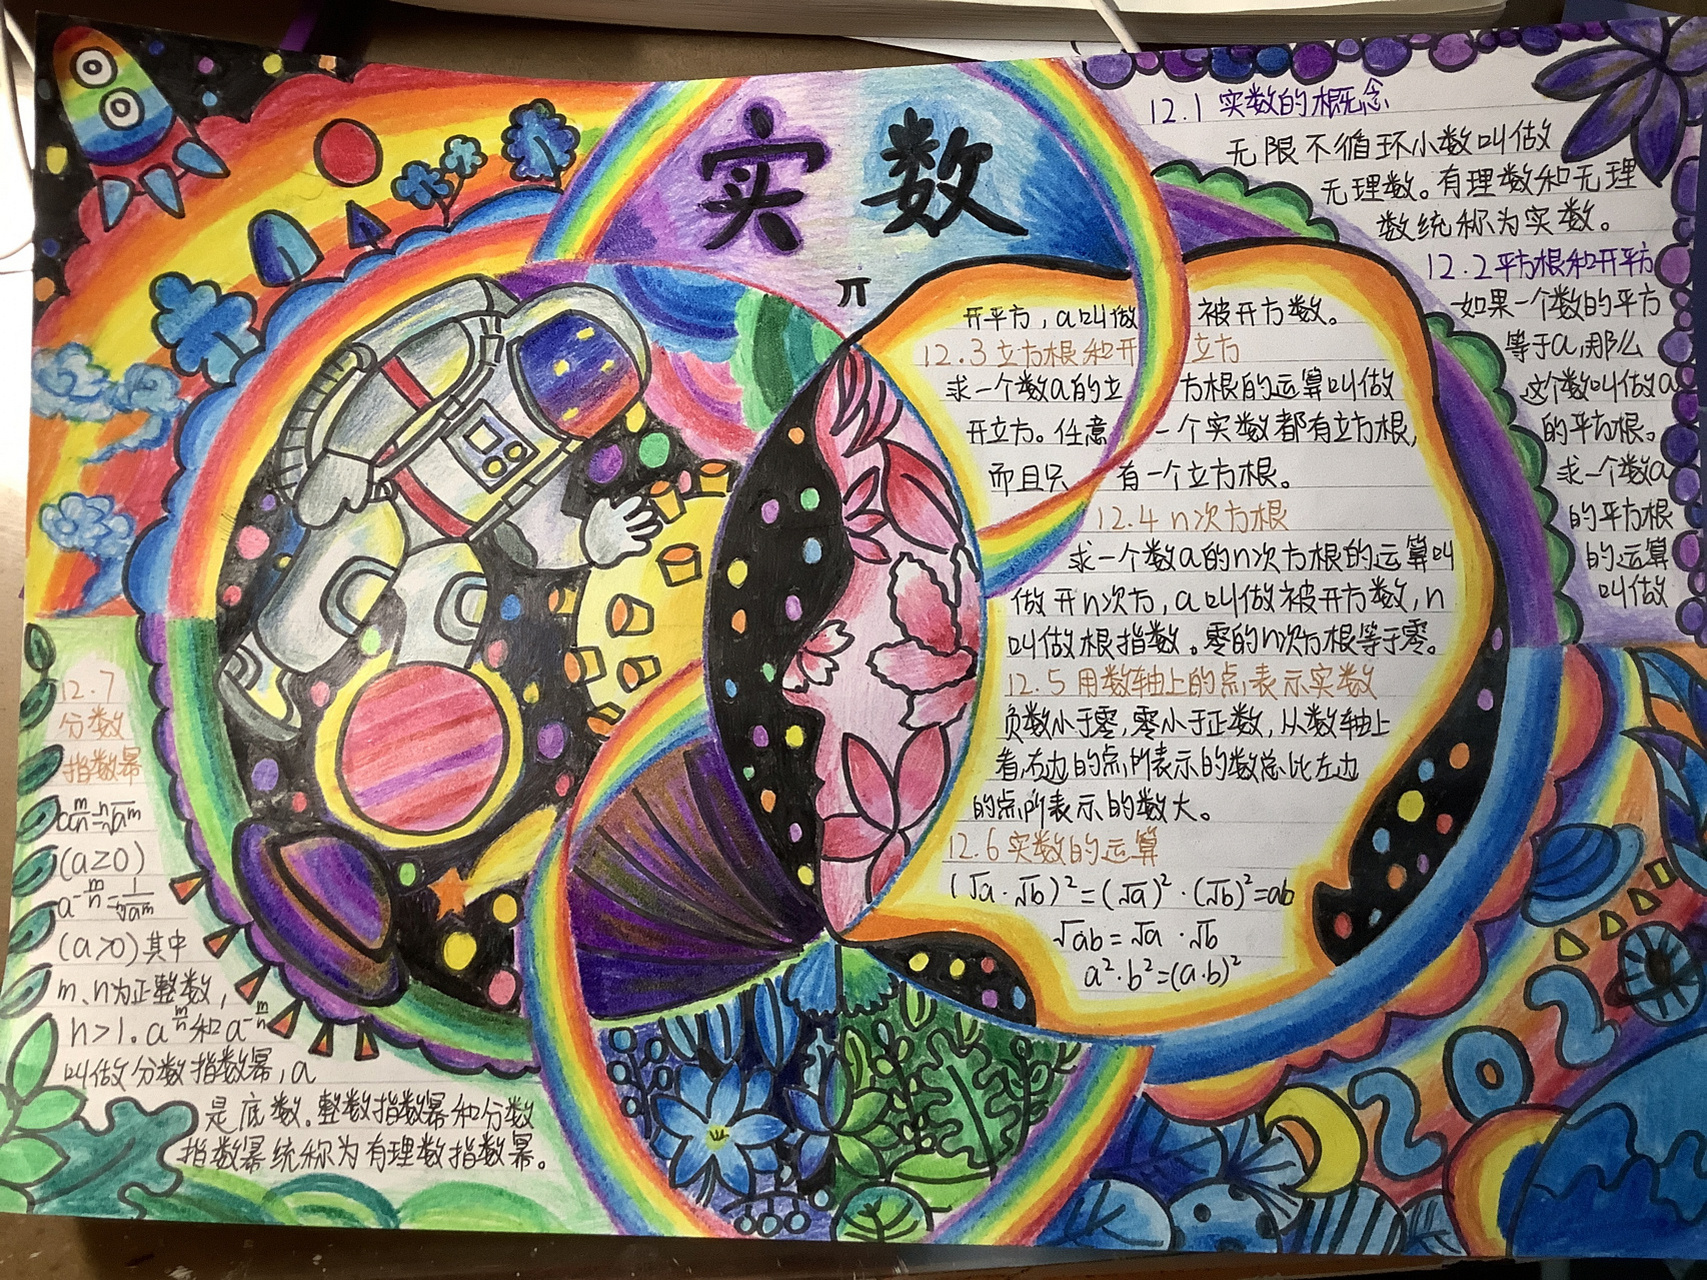 实数
π
12.1 实数的概念
无限不循环小数叫做
无理数。有理数和无理
数统称为实数。
12.2平方根和开平方
如果一个数的平方
等于a,那么
这个数叫做a
的平方根。
求一个数a
的平方根
的运算
叫做
开平方,a叫做 被开方数。
12.3立方根和开 立方
求一个数a的立 方根的运算叫做
开立方。任意 一个实数都有立方根,
而且只 有一个立方根。
12.4 n次方根
求一个数a的n次方根的运算叫
做开n次方,a叫做被开方数,n
叫做根指数。零的n次方根等于零。
12.5用数轴上的点表示实数
负数小于零,零小于正数,从数轴上
看,右边的点所表示的数总比左边
的点所表示的数大。
12.6实数的运算
(√a·√b)²=(√a)²·(√b)²=ab
√ab=√a·√b
a²·b²=(a·b)²
12.7
分数
指数幂
a^(m/n)=ⁿ√a^m
(a≥0)
a^(-m/n)=1/ⁿ√a^m
(a>0)其中
m、n为正整数,
n>1。a^(m/n)和a^(-m/n)
叫做分数指数幂,a
是底数。整数指数幂和分数
指数幂统称为有理数指数幂。
2022